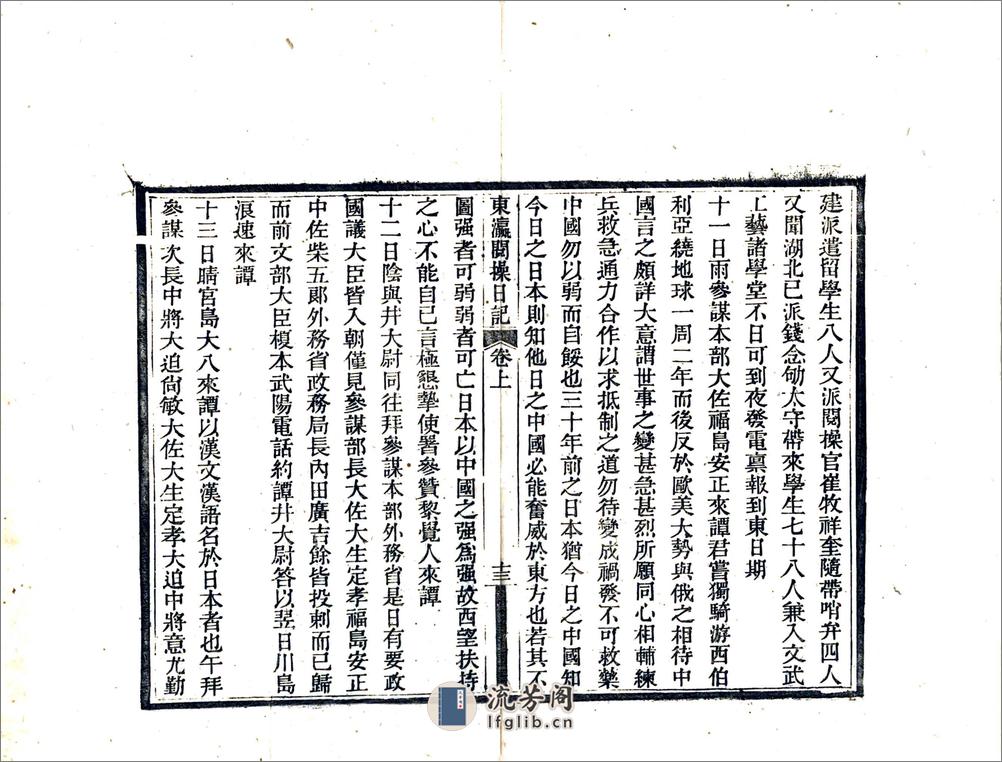 建派遣留學生八人又派閱操官崔牧祥奎隨帶哨弁四人
又聞湖北已派錢念劬太守帶來學生七十八人兼入文武
工藝諸學堂不日可到夜發電稟報到東日期
十一日雨參謀本部大佐福島安正來譚君嘗獨騎游西伯
利亞繞地球一周二年而後反於歐美大勢與俄之相待中
國言之頗詳大意謂世事之變甚急甚烈所願同心相輔練
兵救急通力合作以求抵制之道勿待變成禍發不可救藥
中國勿以弱而自餒也三十年前之日本猶今日之中國知
今日之日本則知他日之中國必能奮威於東方也若其不
東瀛閱操日記 卷上 十三
圖强者可弱弱者可亡日本以中國之强爲强故西望扶持
之心不能自已言極懇摯使署參贊黎覺人來譚
十二日陰與井大尉同往拜參謀本部外務省是日有要政
國議大臣皆入朝僅見參謀部長大佐大生定孝福島安正
中佐柴五郞外務省政務局長內田廣吉餘皆投刺而已歸
而前文部大臣榎本武陽電話約譚井大尉答以翌日川島
浪速來譚
十三日晴宮島大八來譚以漢文漢語名於日本者也午拜
參謀次長中將大迫尙敏大佐大生定孝大迫中將意尤勤
流芳阁
lfglib.cn